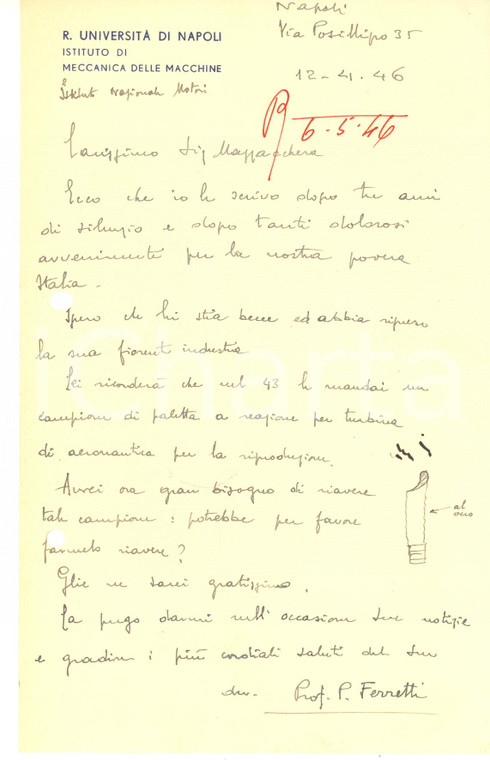 Napoli
Via Posillipo 35
R. UNIVERSITÀ DI NAPOLI
ISTITUTO DI
MECCANICA DELLE MACCHINE
e
Istituto Nazionale Motori
12-4.46
R 6-5-46
Carissimo Sig Mazzucchera
Ecco che io le scrivo dopo tre anni
di silenzio e dopo tanti dolorosi
avvenimenti per la nostra povera
Italia.
Spero che lei stia bene ed abbia ripreso
la sua fiorente industria
Lei ricorderà che nel 43 le mandai un
campione di paletta a reazione per turbina
di aeronautica per la riproduzione.
Avrei ora gran bisogno di riavere
tale campione: potrebbe per favore
farmelo riavere?
al
vero
Gliene sarei gratissimo.
La prego darmi nell'occasione sue notizie
e gradire i più cordiali saluti dal suo
dev. Prof. P. Ferretti